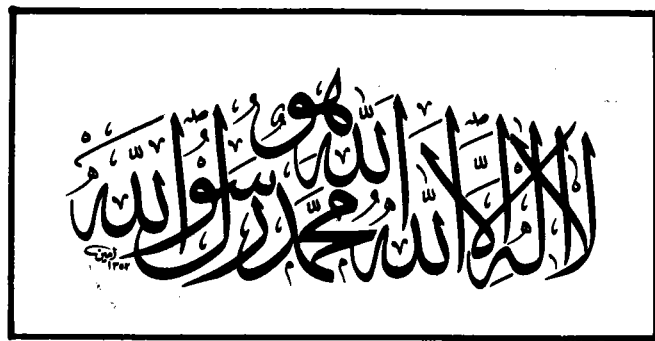 لا اله الا الله هو الله محمد رسول الله
امين